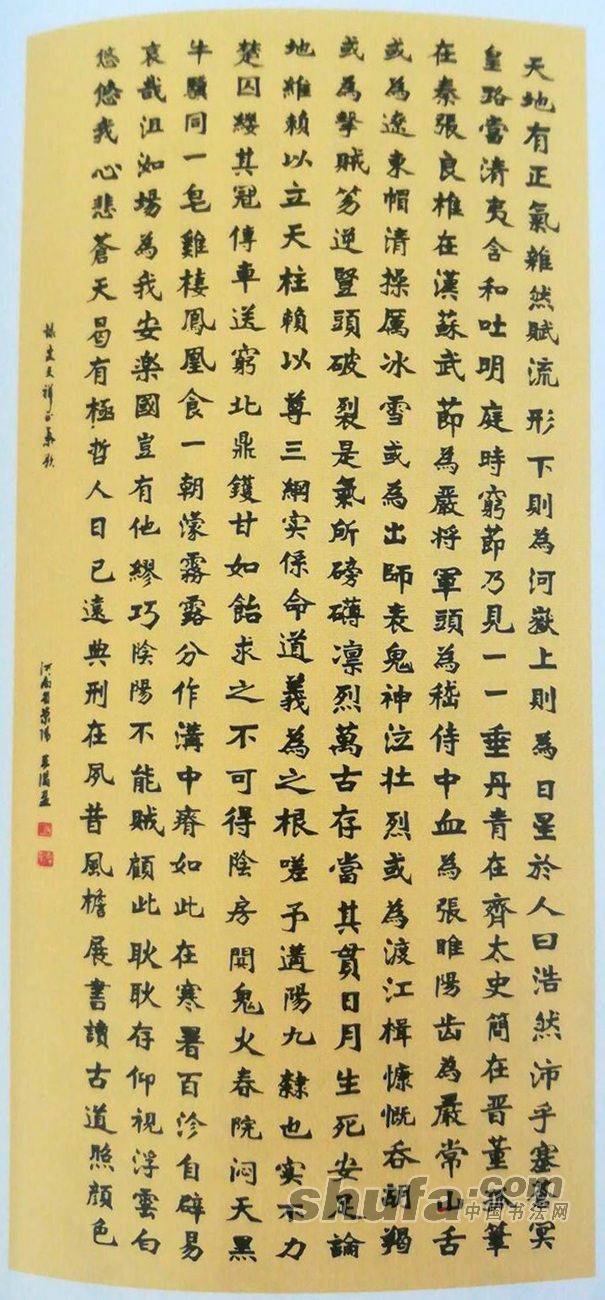 天地有正氣雜然賦流形下則為河嶽上則為日星於人曰浩然沛乎塞蒼冥
皇路當清夷含和吐明庭時窮節乃見一一垂丹青在齊太史簡在晋董狐筆
在秦張良椎在漢蘇武節為嚴将軍頭為嵇侍中血為張睢陽齿為嚴常山舌
或為遼東帽清操厲冰雪或為出師表鬼神泣壮烈或為渡江楫慷慨吞胡羯
或為擊賊笏逆豎頭破裂是氣所磅礴凛烈萬古存當其貫日月生死安足論
地維賴以立天柱賴以尊三綱实係命道義為之根嗟予遘陽九隸也实不力
楚囚纓其冠傳車送窮北鼎鑊甘如飴求之不可得陰房開鬼火春院闷天黑
牛驥同一皂雞棲鳳凰食一朝濛霧露分作溝中瘠如此在寒暑百沴自辟易
哀哉沮洳場為我安樂國豈有他繆巧陰陽不能贼顧此耿耿存仰視浮雲白
悠悠我心悲蒼天曷有極哲人日已遠典刑在夙昔風檐展書讀古道照顏色
錄文天祥正氣歌
河南省荥陽
shufa.com
中国书法网